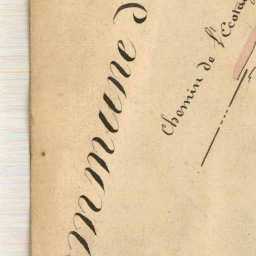 mmune d
Chemin de l'Ecota